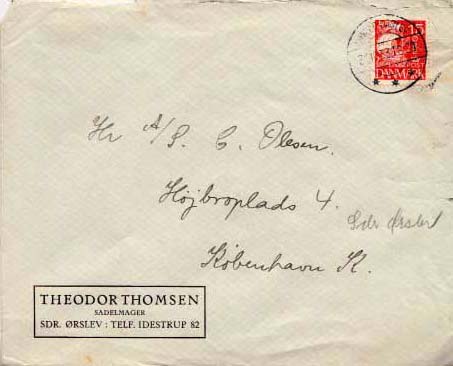 15
DANMARK
Hr A/S. C. Olesen.
Højbroplads 4.
Sdr Ørslev
København K.
THEODOR THOMSEN
SADELMAGER
SDR. ØRSLEV : TELF. IDESTRUP 82